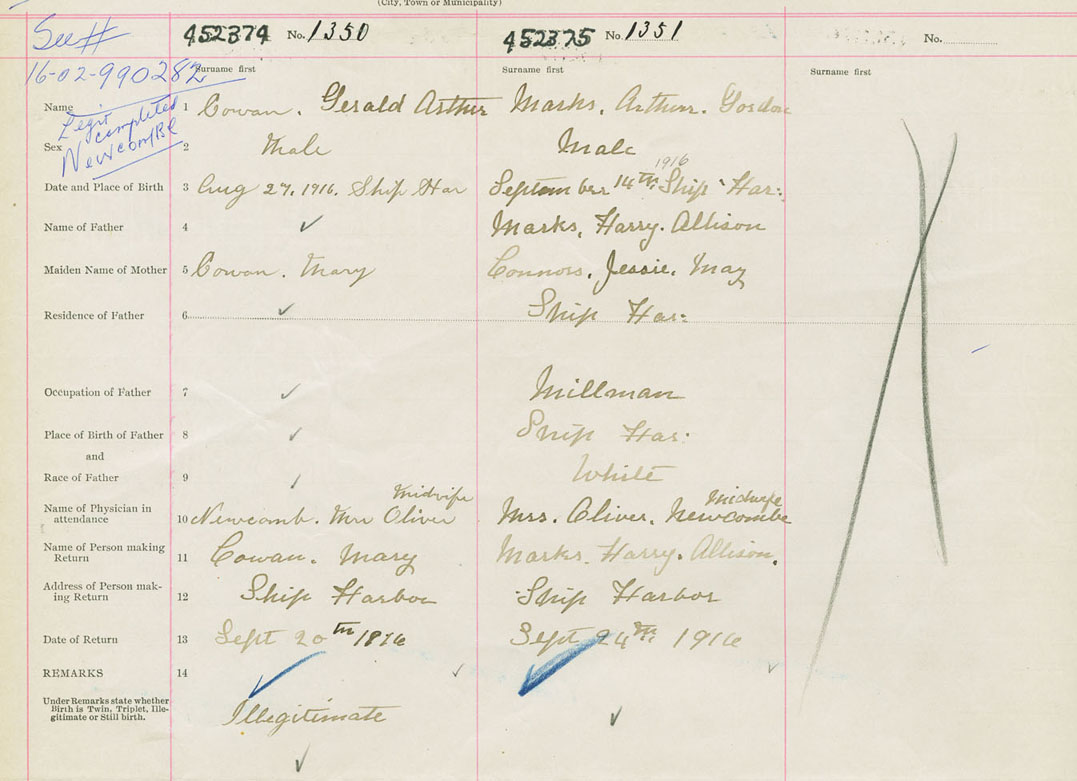 (City, Town or Municipality)
See #
16-02-990282
Legit
completed
Newcom/BC
452374 No. 1350
452375 No. 1351
No.
Surname first
Surname first
Surname first
Name 1 Cowan. Gerald Arthur Marks, Arthur. Gordon
Sex 2 Male Male
1916
Date and Place of Birth 3 Aug 27, 1916. Ship Har September 14th, Ship Har:
Name of Father 4 ✓ Marks, Harry. Allison
Maiden Name of Mother 5 Cowan. Mary Connors, Jessie. May
Residence of Father 6 ✓ Ship Har:
Occupation of Father 7 ✓ Millman
Place of Birth of Father 8 ✓ Ship Har:
and
Race of Father 9 White
Midwife Midwife
Name of Physician in
attendance 10 Newcomb. Mrs Oliver Mrs. Oliver. Newcombe
Name of Person making
Return 11 Cowan. Mary Marks. Harry. Allison.
Address of Person mak-
ing Return 12 Ship Harbor Ship Harbor
Date of Return 13 Sept 20th 1816 Sept 24th 1916
REMARKS 14 ✓ ✓
Under Remarks state whether
Birth is Twin, Triplet, Ille-
gitimate or Still birth. Illegitimate ✓
✓